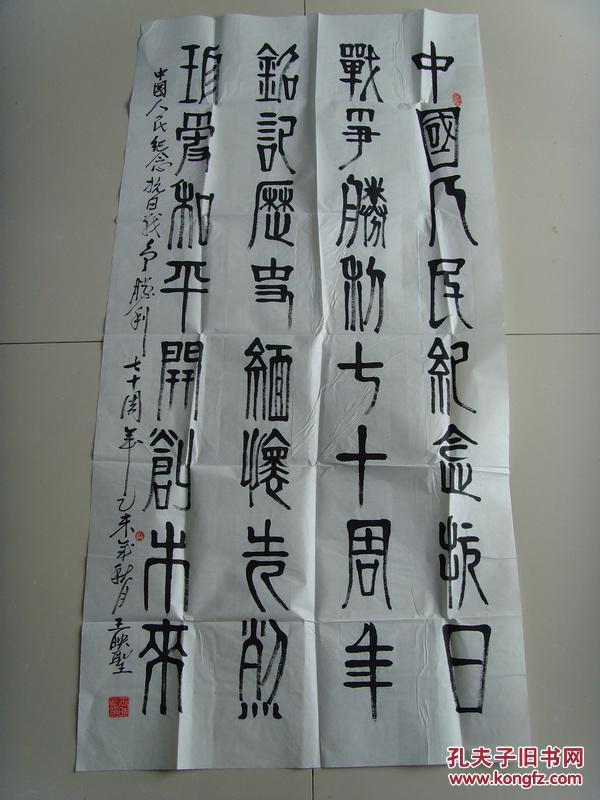 中國人民紀念抗日
戰爭勝利七十周年
銘記歷史緬懷先烈
珍愛和平開創未來
中國人民紀念抗日戰爭勝利七十周年乙未年秋月王映聖
孔夫子旧书网
www.kongfz.com